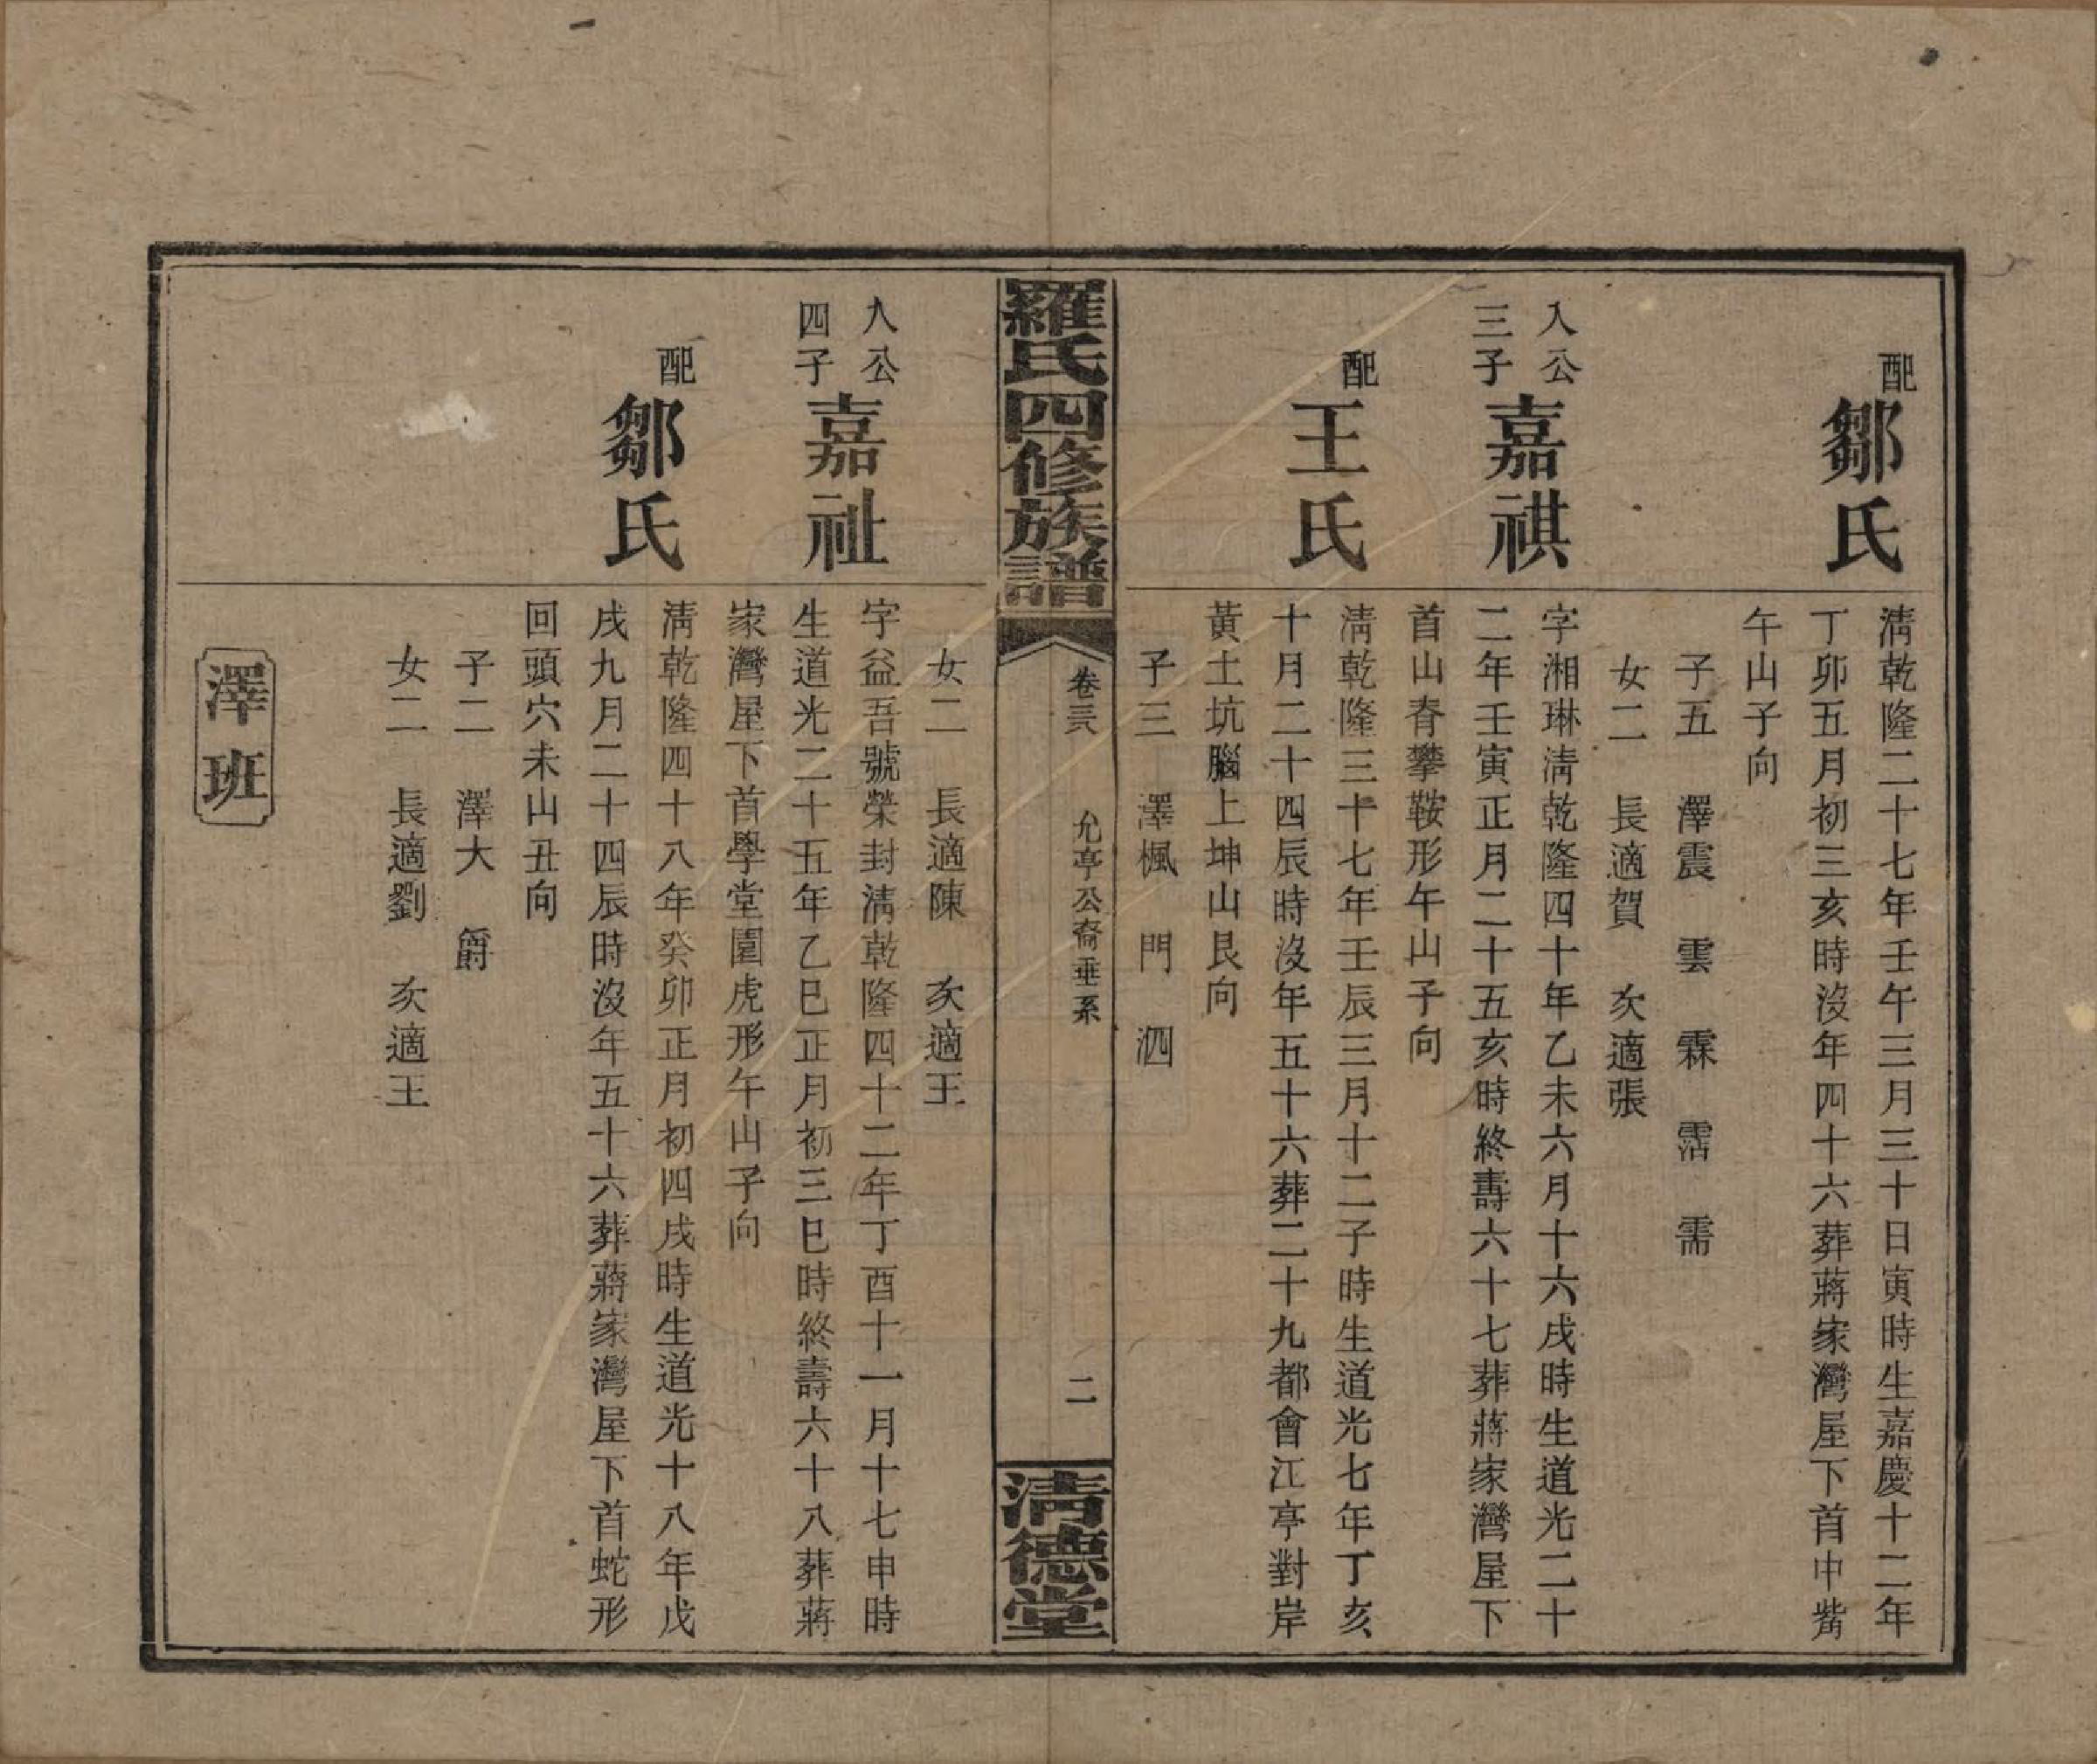 配
鄒氏
淸乾隆二十七年壬午三月三十日寅時生嘉慶十二年
丁卯五月初三亥時沒年四十六葬蔣家灣屋下首中嘴
午山子向
子五　澤震　雲　霖　霑　需
女二　長適賀　次適張
入公
三子
嘉祺
字湘琳淸乾隆四十年乙未六月十六戌時生道光二十
二年壬寅正月二十五亥時終壽六十七葬蔣家灣屋下
首山脊攀鞍形午山子向
配
王氏
淸乾隆三十七年壬辰三月十二子時生道光七年丁亥
十月二十四辰時沒年五十六葬二十九都會江亭對岸
黃土坑腦上坤山艮向
子三　澤楓　門　泗
羅氏四修族譜
卷三六
允亭公裔垂系
二
淸德堂
女二　長適陳　次適王
入公
四子
嘉祉
字益吾號榮封淸乾隆四十二年丁酉十一月十七申時
生道光二十五年乙巳正月初三巳時終壽六十八葬蔣
家灣屋下首學堂園虎形午山子向
配
鄒氏
淸乾隆四十八年癸卯正月初四戌時生道光十八年戊
戌九月二十四辰時沒年五十六葬蔣家灣屋下首蛇形
回頭穴未山丑向
子二　澤大　爵
女二　長適劉　次適王
澤班